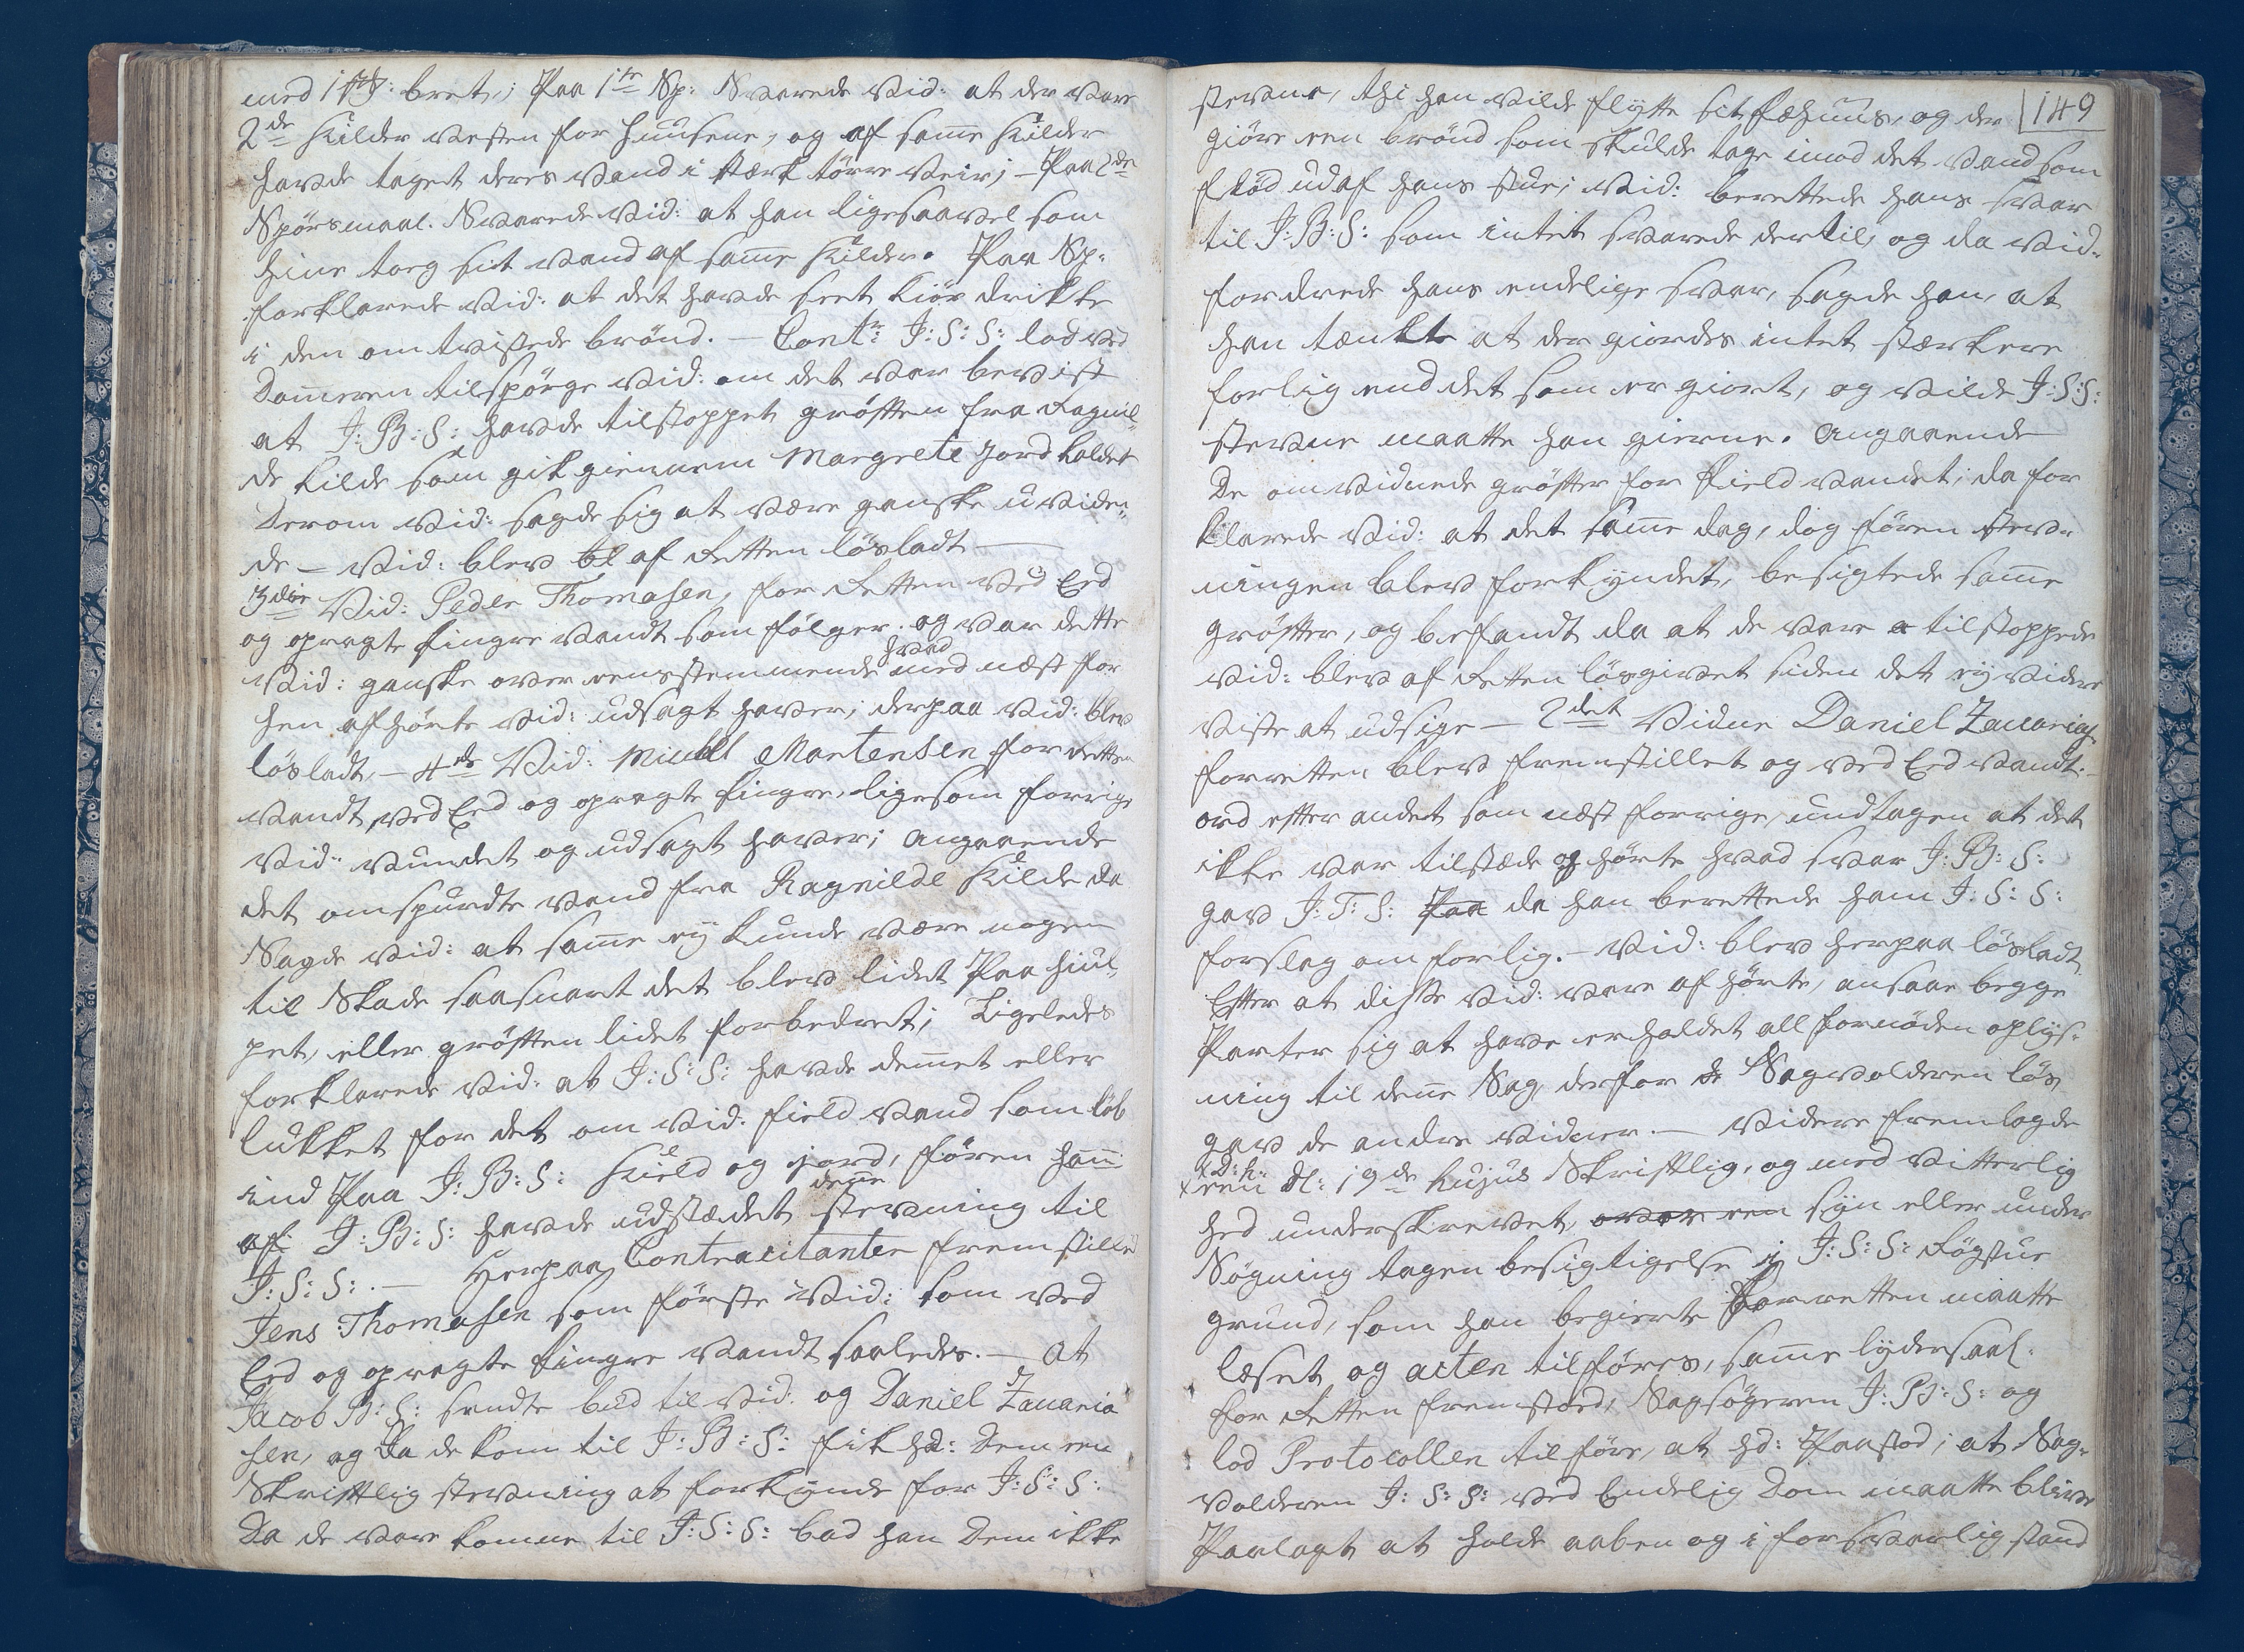 bret; Paa 1te Sp: Svarede Vid: at der vare
2de Kilder vesten for Huusene, og af same Kilder
havde taget deres vand i stærk törre Veir; – Paa 2de
Spörsmaal. Svarede Vid: at han ligesaavel som
hine tog sit vand af same Kilder. Paa Sp:
forklarede Vid: at det havde seet Kiör drikke
i den omtvistede brönd. – Contr: J: S: S: lod ved
Domeren tilspörge Vid: om det var bevist
at J: B: S: havde tilstoppet gröften fra Ragnil-
de Kilde som gik giennem Margrete jord kaldet
Derom Vid: sagde sig at være ganske uviden-
de – Vid: blev af Retten lösladt –
3die Vid: Peder Thomasen, for Retten ved Eed
og opragte fingre vandt som fölger. og var dette
Vid: ganske over eensstemmende med hvad næst for
hen afhörte Vid: udsagt haver; derpaa Vid: blev
lösladt, – 4de Vid: Mickel Mortensen for Retten
vandt, ved Eed og opragte fingre, ligesom forrige
Vid: vundet og udsagt haver; angaaende
det omspurdte vand fra Ragnilde Kilde da
Sagde Vid: at same ey kunde være nogen
til Skade saasnart det blev lidet Paa hiul-
pet, eller gröften lidet forbedret; Ligeledes
forklarede Vid: at J: S: S: havde demet eller
lukket for det om Vid: field vand som löb
ind Paa J: B: S: Kield og jord, fören han
af J: B: S: havde udstædet dene stevning til
J: S: S: – Herpaa Contracitanten fremstillede
Jens Thomasen som förste Vid: som ved
Eed og opragte fingre vandt saaledes. – At
Jacob B: S: sendte bud til Vid: og Daniel Zacaria
sen, og da de kom til J: B: S: fik hd: Dem en
Skriftlig stevning at forkynde for J: S: S:
Da de vare komne til J: S: S: bad han Dem ikke
149
stevne, thi han vilde flytte sit fæhuus, og der
giöre een brönd som skulde tage imod det vand som
flöd ud af hans stue; Vid: berettede hans svar
til J: B: S: som intet svarede dertil, og da Vid:
fordrede hans endelige svar, sagde han, at
han tænkte at der giordes intet stærkere
forlig end det som er giort, og vilde J: S: S:
stevne maatte han gierne. Angaaende
De omvidnede gröfter for Field vandet; da for
klarede Vid: at det same dag, dog fören stev-
ningen blev forkyndet, besigtede same
gröfter, og befandt da at de vare tilstoppede
Vid: blev af Retten lösgivet siden det ey videre
viste at udsige – 2det Vidne Daniel Zacarias
forretten blev fremstillet og ved Eed vandt: –
ord efter andet som næst forrige, undtagen at det
ikke var tilstæde og hörte hvad svar J: B: S:
gav J: T: S: Paa da han berettede ham J: S: S:
forslag om forlig. – Vid: blev herpaa lösladt
Efter at disse Vid: vare af hörte, ansaae begge
Parter sig at have erholdet all fornöden oplys-
ning til dene Sag, derfor Sagvolderen lös
gav de andre vidner. – Videre fremlagde
D: H: een dl: 19de hujus Skriftlig, og med Vitterlig
hed underskrevet, over een syn eller under
Sögning tagen besigtigelse i J: S: S: Rögstue
grund, som han begierte forretten maatte
læset og acten tilföres, same lyder saal:
for Retten fremstod, Sagsögeren J: B: S: og
lod Protocollen tilföre, at hd: Paastod; at Sag-
volderen J: S: S: ved Endelig Dom maatte blive
Paalagt at holde aaben og i forsvarlig stand